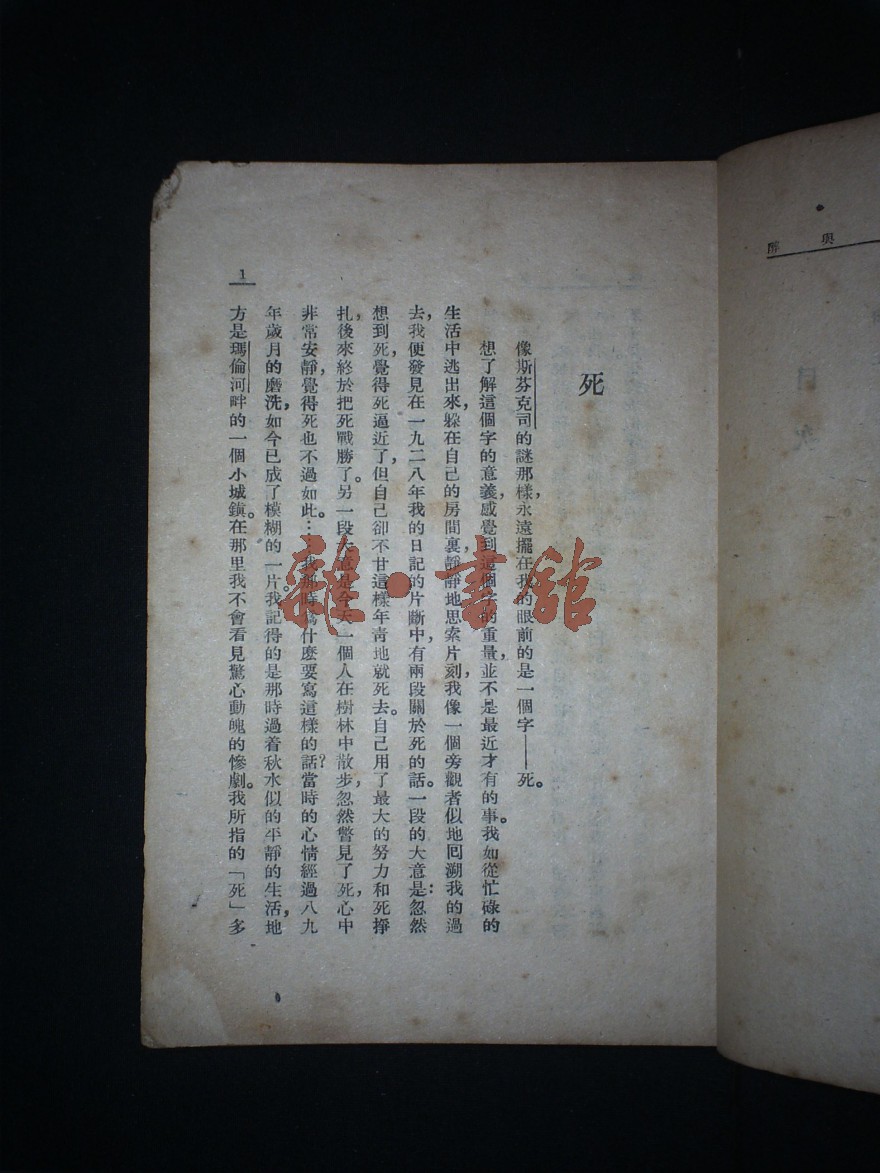 死
像斯芬克司的謎那樣，永遠擺在我的眼前的是一個字——死。
想了解這個字的意義，感覺到這個字的重量，並不是最近才有的事。我如從忙碌的
生活中逃出來，躲在自己的房間裏，靜靜地思索片刻，我像一個旁觀者似地回溯我的過
去，我便發見在一九二八年我的日記的片斷中，有兩段關於死的話。一段的大意是：忽然
想到死，覺得死逼近了，但自己卻不甘這樣年青地就死去。自己用了最大的努力和死掙
扎，後來終於把死戰勝了。另一段大意是今天一個人在樹林中散步，忽然瞥見了死，心中
非常安靜，覺得死也不過如此。……我那時爲什麼要寫這樣的話？當時的心情經過八九
年歲月的磨洗，如今已成了模糊的一片。我記得的是那時過着秋水似的平靜的生活，地
方是瑪倫河畔的一個小城鎮。在那里我不會看見驚心動魄的慘劇。我所指的「死」多
1
與 醉
目 次
雜·書館